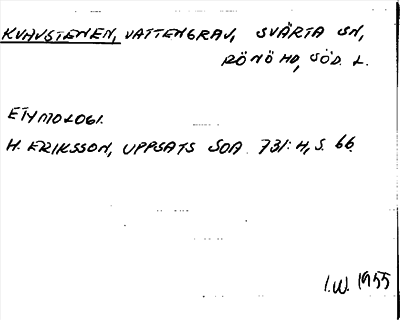 KVHVSTENEN, VATTENGRAV, SVÄRTA SN,
RÖNÖ HD, SÖD. L.
ETYMOLOGI.
H. ERIKSSON, UPPSATS SOA 731:H, S. 66.
I.W. 1955